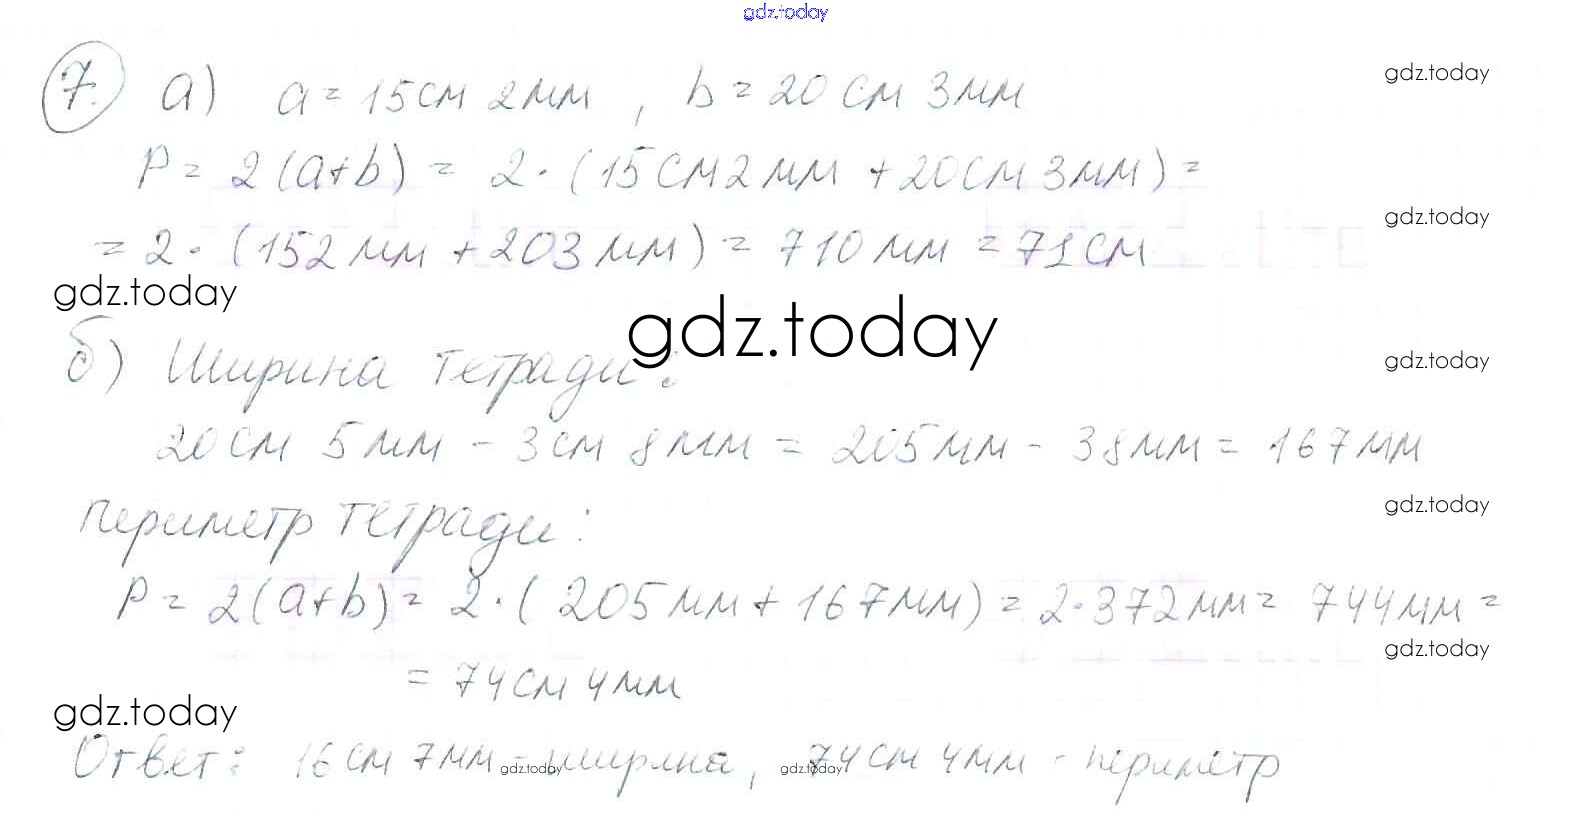 gdz.today
7. а) a = 15 см 2 мм , b = 20 см 3 мм
gdz.today
P = 2(a+b) = 2·(15 см 2 мм + 20 см 3 мм) =
gdz.today
= 2·(152 мм + 203 мм) = 710 мм = 71 см
gdz.today
gdz.today
б) Ширина тетради:
gdz.today
20 см 5 мм - 3 см 8 мм = 205 мм - 38 мм = 167 мм
gdz.today
периметр тетради:
P = 2(a+b) = 2·(205 мм + 167 мм) = 2·372 мм = 744 мм =
gdz.today
= 74 см 4 мм
gdz.today
Ответ: 16 см 7 мм - ширина, 74 см 4 мм - периметр
gdz.today
gdz.today